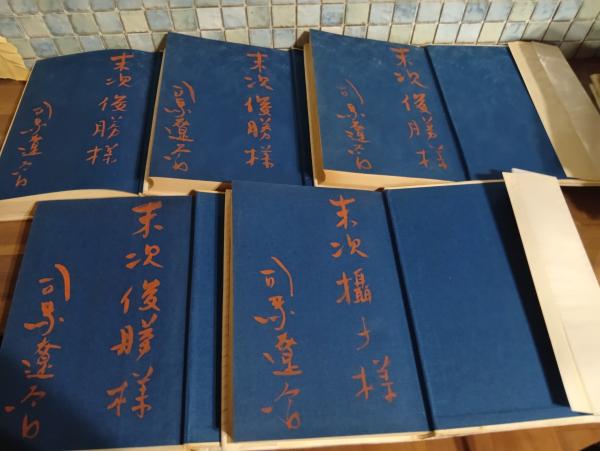 末次俊勝様
司馬遼太郎
末次俊勝様
司馬遼太郎
末次俊勝様
司馬遼太郎
末次俊勝様
司馬遼太郎
末次攝子様
司馬遼太郎